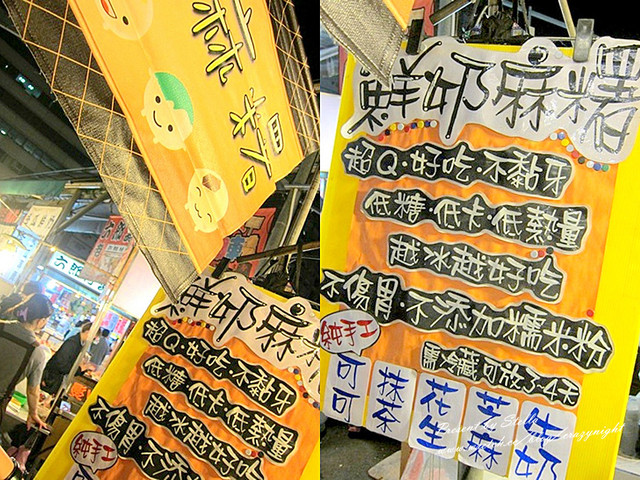 麻糬
鮮奶麻
超Q·好吃·不黏牙
低糖·低卡·低熱量
越冰越好吃
不傷胃·不添
純手工
鮮奶麻糬
超Q·好吃·不黏牙
低糖·低卡·低熱量
越冰越好吃
不傷胃·不添加糯米粉
純手工
需冷藏可放3-4天
可可
抹茶
花生
芝麻
鮮奶